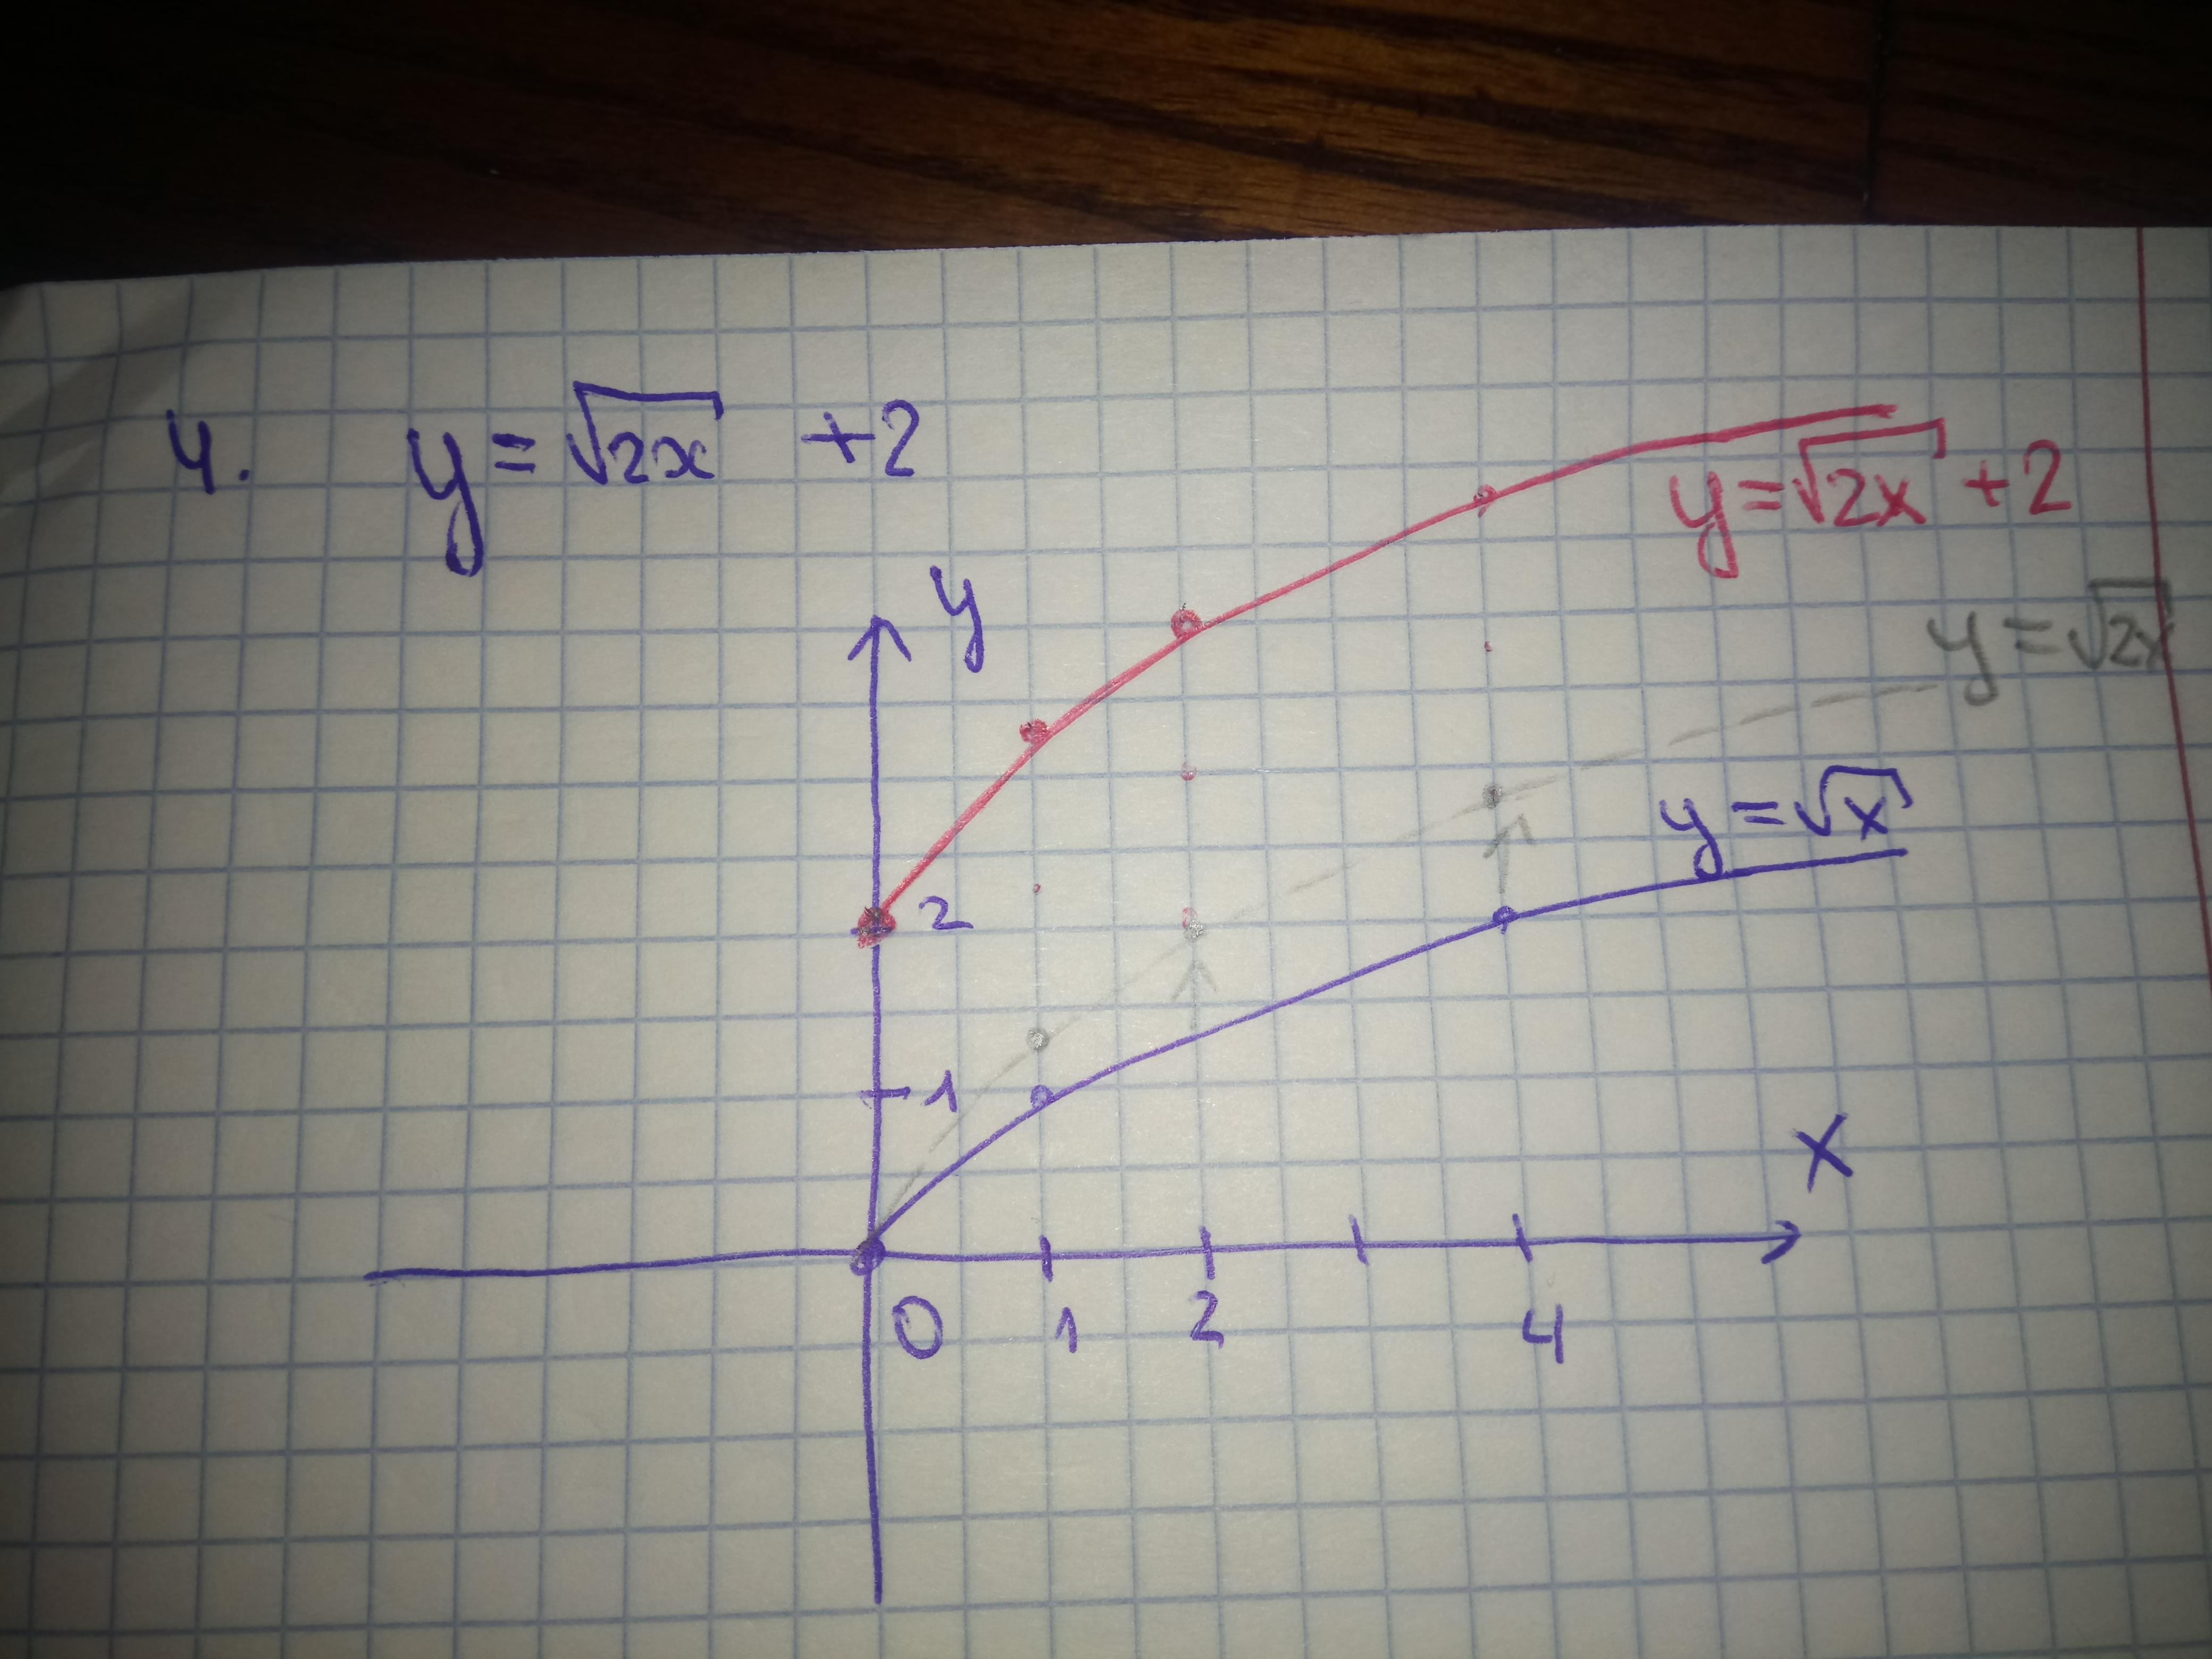 4. y = √2x + 2
y = √2x + 2
y
y = √2x
y = √x
2
1
x
0 1 2 4